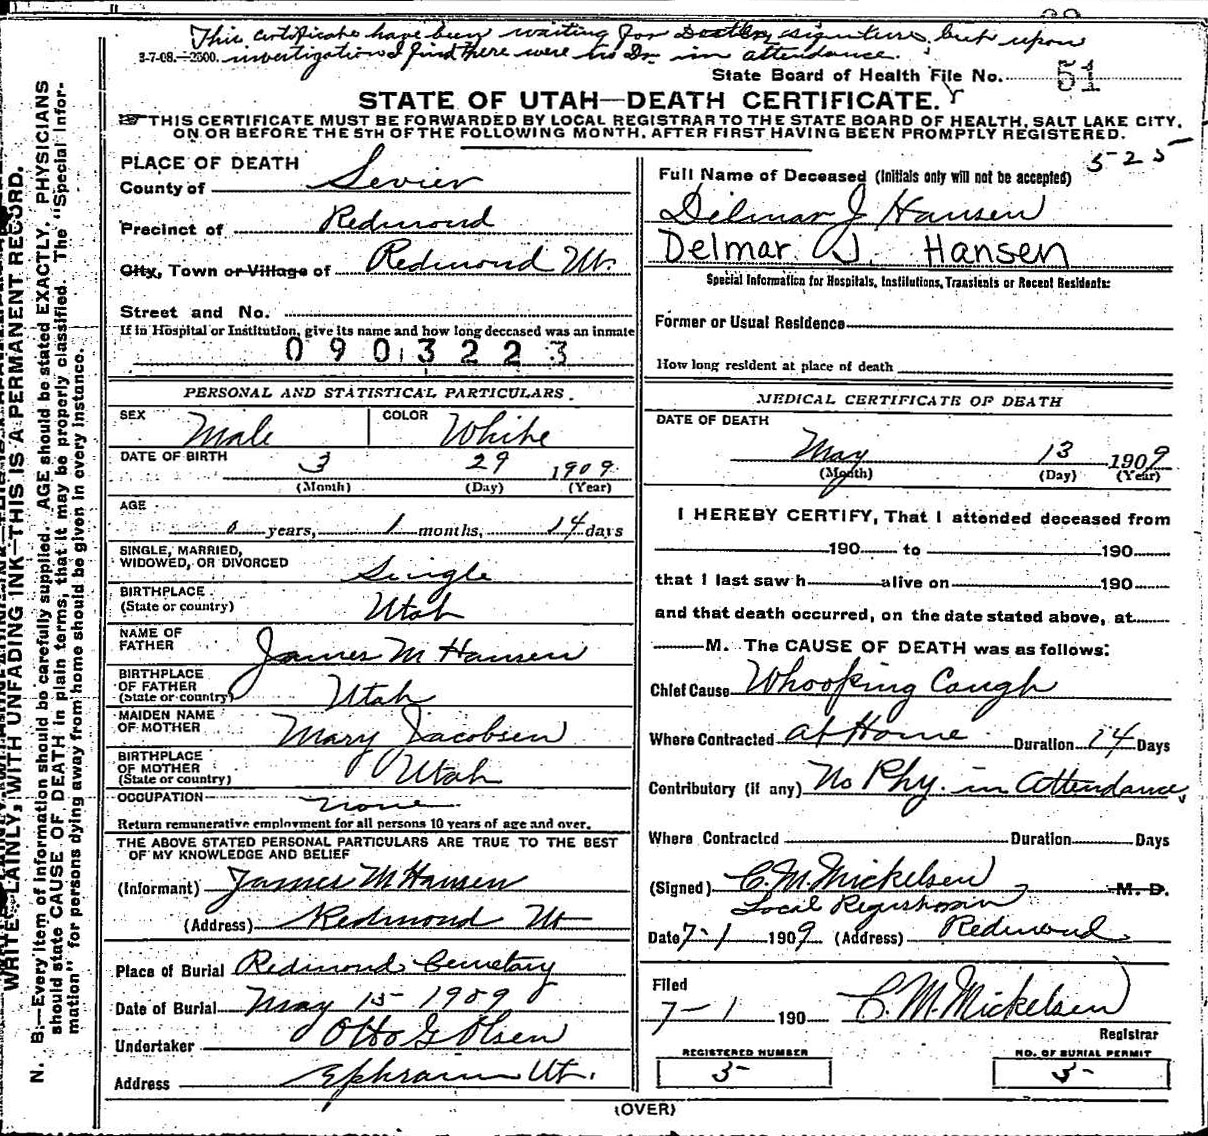 This certificate have been waiting for Doctors signature, but upon
3-7-08.—2500. investigation I find there were no Dr. in attendance.
State Board of Health File No. 51
STATE OF UTAH—DEATH CERTIFICATE.
THIS CERTIFICATE MUST BE FORWARDED BY LOCAL REGISTRAR TO THE STATE BOARD OF HEALTH, SALT LAKE CITY,
ON OR BEFORE THE 5TH OF THE FOLLOWING MONTH, AFTER FIRST HAVING BEEN PROMPTLY REGISTERED.
WRITE PLAINLY, WITH UNFADING INK—THIS IS A PERMANENT RECORD.
N. B.—Every item of information should be carefully supplied. AGE should be stated EXACTLY. PHYSICIANS
should state CAUSE OF DEATH in plain terms, that it may be properly classified. The "Special Infor-
mation" for persons dying away from home should be given in every instance.
PLACE OF DEATH
County of Sevier
Precinct of Redmond
City, Town or Village of Redmond Ut.
Street and No.
If in Hospital or Institution, give its name and how long deceased was an inmate
0903223
PERSONAL AND STATISTICAL PARTICULARS.
SEX Male COLOR White
DATE OF BIRTH 3 29 1909
(Month) (Day) (Year)
AGE
0 years, 1 months, 14 days
SINGLE, MARRIED,
WIDOWED, OR DIVORCED Single
BIRTHPLACE
(State or country) Utah
NAME OF
FATHER James M Hansen
BIRTHPLACE
OF FATHER
(State or country) Utah
MAIDEN NAME
OF MOTHER Mary Jacobsen
BIRTHPLACE
OF MOTHER
(State or country) Utah
OCCUPATION none
Return remunerative employment for all persons 10 years of age and over.
THE ABOVE STATED PERSONAL PARTICULARS ARE TRUE TO THE BEST
OF MY KNOWLEDGE AND BELIEF
(Informant) James M Hansen
(Address) Redmond Ut
Place of Burial Redmond Cemetary
Date of Burial May 15 1909
Undertaker Otto G Olsen
Address Ephraim Ut.
525
Full Name of Deceased (Initials only will not be accepted)
Dilmar J Hansen
Delmar J. Hansen
Special Information for Hospitals, Institutions, Transients or Recent Residents:
Former or Usual Residence
How long resident at place of death
MEDICAL CERTIFICATE OF DEATH
DATE OF DEATH
May 13 1909
(Month) (Day) (Year)
I HEREBY CERTIFY, That I attended deceased from
190 to 190
that I last saw h alive on 190
and that death occurred, on the date stated above, at
M. The CAUSE OF DEATH was as follows:
Chief Cause Whooping Cough
Where Contracted at Home Duration 14 Days
Contributory (if any) No Phy. in Attendance,
Where Contracted Duration Days
(Signed) C. M. Mickelsen M. D.
Local Registrar
Date 7-1 1909 (Address) Redmond
Filed
7-1 190 C. M. Mickelsen
Registrar
REGISTERED NUMBER
5
NO. OF BURIAL PERMIT
5
(OVER)